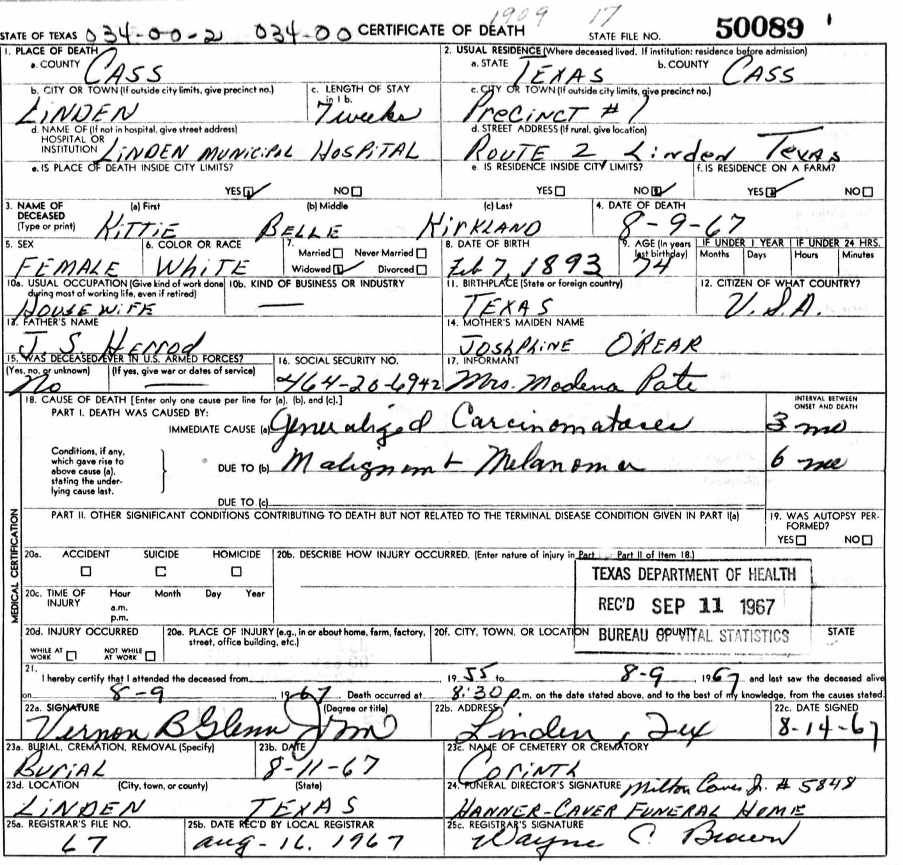 1909 17
STATE OF TEXAS 034-00-2 034-00 CERTIFICATE OF DEATH STATE FILE NO. 50089
1. PLACE OF DEATH 2. USUAL RESIDENCE (Where deceased lived. If institution: residence before admission)
a. COUNTY CASS a. STATE TEXAS b. COUNTY CASS
b. CITY OR TOWN (If outside city limits, give precinct no.) c. LENGTH OF STAY in 1 b. c. CITY OR TOWN (If outside city limits, give precinct no.)
LINDEN 7 weeks PRECINCT # 7
d. NAME OF (If not in hospital, give street address) HOSPITAL OR INSTITUTION d. STREET ADDRESS (If rural, give location)
LINDEN MUNICIPAL HOSPITAL ROUTE 2 Linden TEXAS
e. IS PLACE OF DEATH INSIDE CITY LIMITS? e IS RESIDENCE INSIDE CITY LIMITS? f. IS RESIDENCE ON A FARM?
YES NO YES NO YES NO
3. NAME OF DECEASED (Type or print) (a) First (b) Middle (c) Last 4. DATE OF DEATH
KITTIE BELLE KIRKLAND 8-9-67
5. SEX 6. COLOR OR RACE 7. Married Never Married 8. DATE OF BIRTH 9. AGE (In years last birthday) IF UNDER 1 YEAR IF UNDER 24 HRS.
FEMALE WHITE Widowed Divorced Feb 7, 1893 74 Months Days Hours Minutes
10a. USUAL OCCUPATION (Give kind of work done during most of working life, even if retired) 10b. KIND OF BUSINESS OR INDUSTRY 11. BIRTHPLACE (State or foreign country) 12. CITIZEN OF WHAT COUNTRY?
HOUSEWIFE TEXAS U.S.A.
13. FATHER'S NAME 14. MOTHER'S MAIDEN NAME
J. S. Herrod JOSHPHINE O'REAR
15. WAS DECEASED EVER IN U.S. ARMED FORCES? 16. SOCIAL SECURITY NO. 17. INFORMANT
(Yes, no, or unknown) (If yes, give war or dates of service)
No 464-20-6942 Mrs. Modena Pate
18. CAUSE OF DEATH [Enter only one cause per line for (a). (b), and (c).] INTERVAL BETWEEN ONSET AND DEATH
PART I. DEATH WAS CAUSED BY:
IMMEDIATE CAUSE (a) Generalized Carcinomatases 3 mo
Conditions, if any, which gave rise to above cause (a). stating the underlying cause last.
DUE TO (b) Malignant Melanoma 6 mo
DUE TO (c)
PART II. OTHER SIGNIFICANT CONDITIONS CONTRIBUTING TO DEATH BUT NOT RELATED TO THE TERMINAL DISEASE CONDITION GIVEN IN PART I(a) 19. WAS AUTOPSY PERFORMED?
YES NO
MEDICAL CERTIFICATION
20a. ACCIDENT SUICIDE HOMICIDE 20b. DESCRIBE HOW INJURY OCCURRED. (Enter nature of injury in Part Part II of Item 18.)
20c. TIME OF INJURY Hour a.m. p.m. Month Day Year
TEXAS DEPARTMENT OF HEALTH
REC'D SEP 11 1967
BUREAU OF VITAL STATISTICS
20d. INJURY OCCURRED 20e. PLACE OF INJURY (e.g., in or about home, farm, factory, street, office building, etc.) 20f. CITY, TOWN, OR LOCATION STATE
WHILE AT WORK NOT WHILE AT WORK
21. I hereby certify that I attended the deceased from 1955 to 8-9 1967 and last saw the deceased alive
on 8-9 1967 Death occurred at 8:30 p.m. on the date stated above, and to the best of my knowledge, from the causes stated.
22a. SIGNATURE (Degree or title) 22b. ADDRESS 22c. DATE SIGNED
Vernon B Glenn Jr MD Linden, Tex 8-14-67
23a. BURIAL, CREMATION, REMOVAL (Specify) 23b. DATE 23c. NAME OF CEMETERY OR CREMATORY
BURIAL 8-11-67 Corinth
23d. LOCATION (City, town, or county) (State) 24. FUNERAL DIRECTOR'S SIGNATURE Milton Caver Jr. # 5848
LINDEN TEXAS HANNER-CAVER FUNERAL HOME
25a. REGISTRAR'S FILE NO. 25b. DATE REC'D BY LOCAL REGISTRAR 25c. REGISTRAR'S SIGNATURE
67 aug-16, 1967 Wayne C. Brown